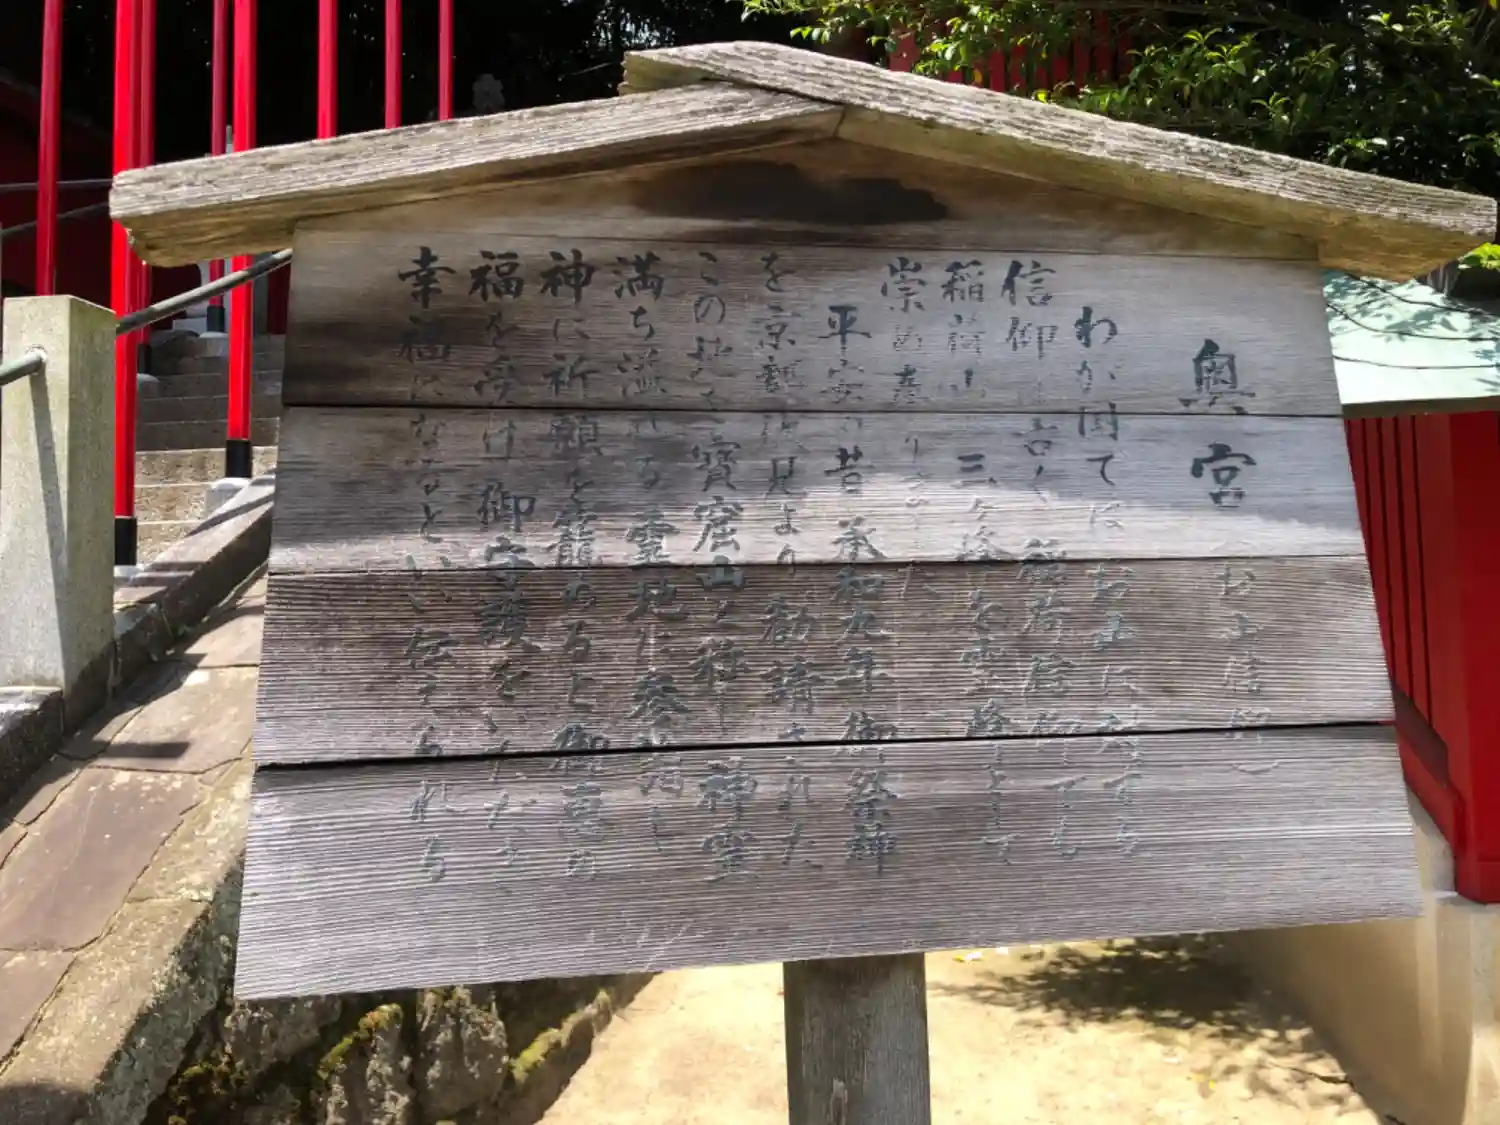 奥宮 (お山信仰)
わが国ではお山に対する
信仰は古く 稲荷信仰でも
稲荷山 三ヶ峰を霊峰として
崇め奉りました
平安の昔 承和九年 御祭神
を京都伏見より勧請された
この地を寳窟山と称し 神霊
満ち溢れる霊地に参籠し
神に祈願を籠めると御神恵の
福を受け 御守護をいただき
幸福になるといい伝えられる